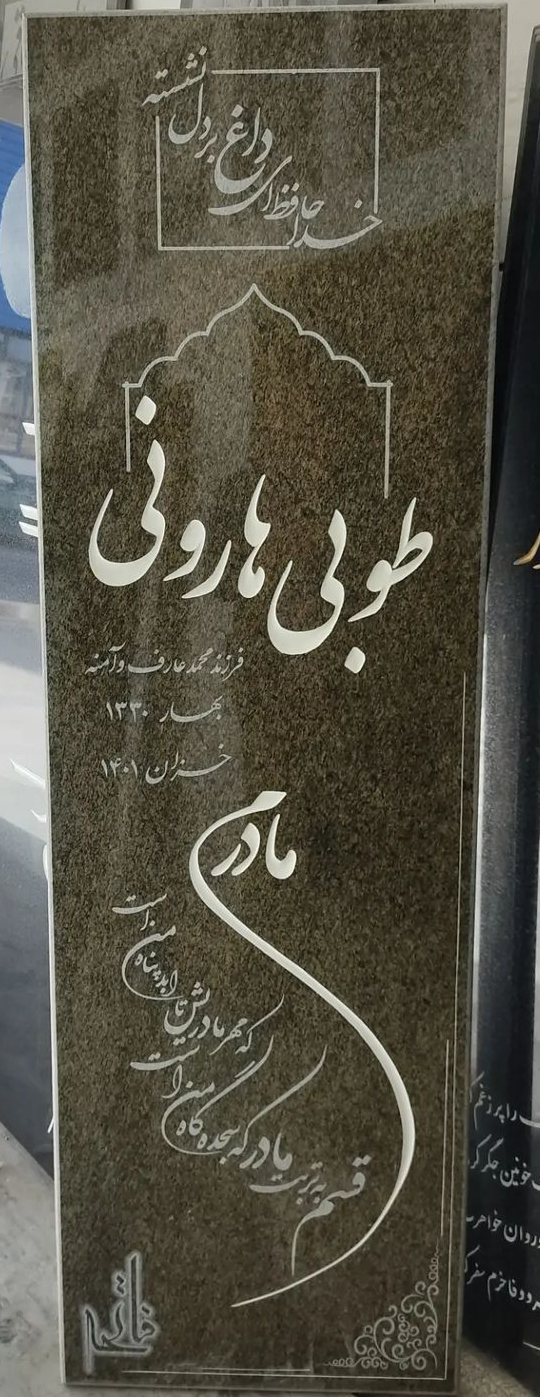 خداحافظ ای
داغ بر دل نشسته
طوبی هارونی
فرزند محمد عارف و آمنه
بهار ۱۳۳۰
خزان ۱۴۰۱
مادرم
قسم به تربت مادر که سجده گاه من است
که مهر مادریش تا ابد پناه من است
فاتحه